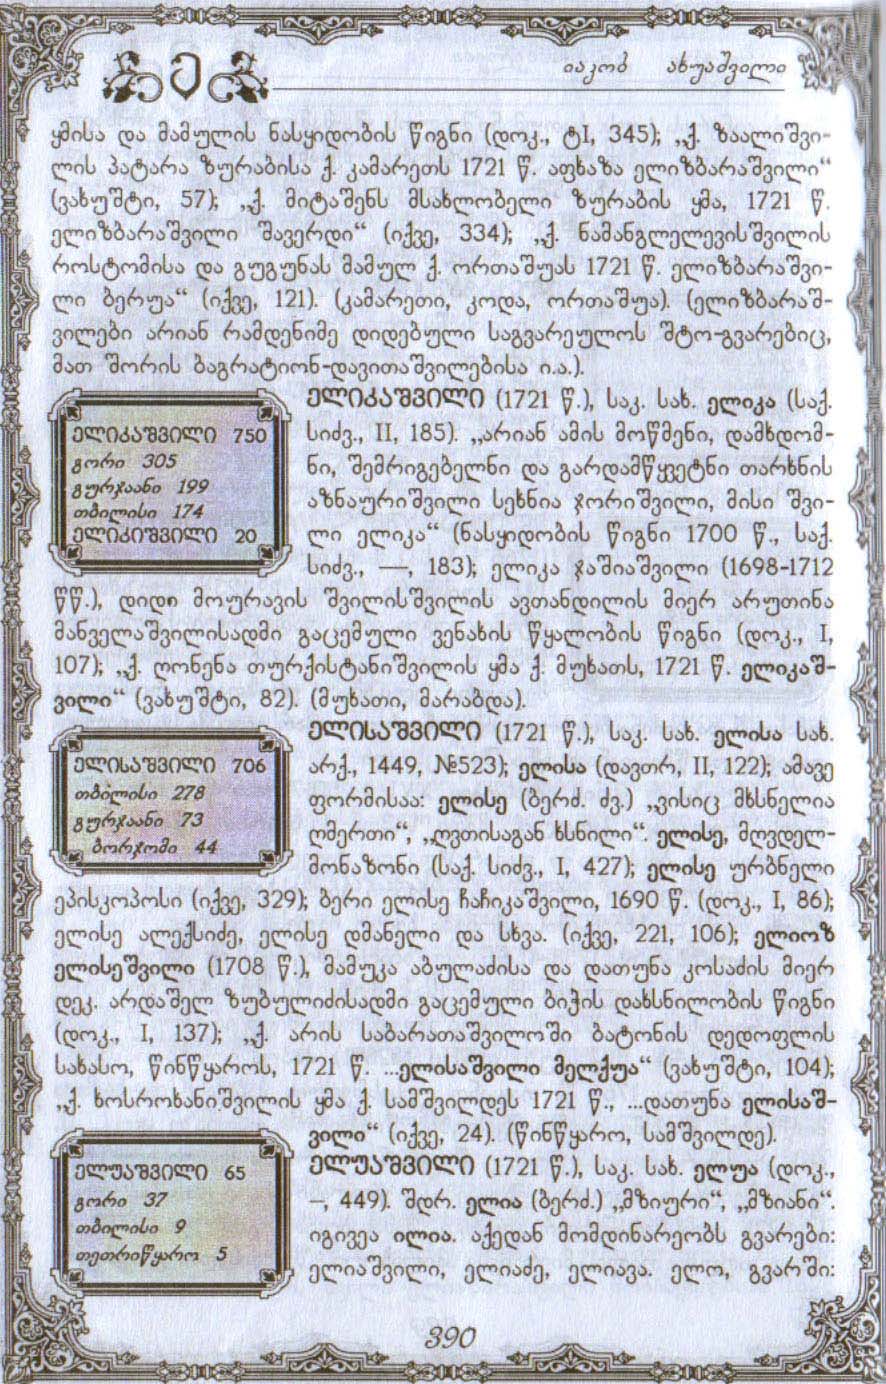 ე
იაკობ ახუაშვილი
ყმისა და მამულის ნასყიდობის წიგნი (დოკ., ტI, 345); „ქ. ზაალიშვი-
ლის პატარა ზურაბისა ქ. კამარეთს 1721 წ. აფხაზა ელიზბარაშვილი“
(ვახუშტი, 57); „ქ. მიტაშენს მსახლობელი ზურაბის ყმა, 1721 წ.
ელიზბარაშვილი შავერდი“ (იქვე, 334); „ქ. ნამანგლელევისშვილის
როსტომისა და გუგუნას მამულ ქ. ორთაშუას 1721 წ. ელიზბარაშვი-
ლი ბერუა“ (იქვე, 121). (კამარეთი, კოდა, ორთაშუა). (ელიზბარაშ-
ვილები არიან რამდენიმე დიდებული საგვარეულოს შტო-გვარებიც,
მათ შორის ბაგრატიონ-დავითაშვილებისა ი.ა.).
ელიკაშვილი 750
გორი 305
გურჯაანი 199
თბილისი 174
ელიკიშვილი 20
ელიკაშვილი (1721 წ.), საკ. სახ. ელიკა (საქ.
სიძვ., II, 185). „არიან ამის მოწმენი, დამხდომ-
ნი, შემრიგებელნი და გარდამწყვეტნი თარხნის
აზნაურიშვილი სეხნია ჯორიშვილი, მისი შვი-
ლი ელიკა“ (ნასყიდობის წიგნი 1700 წ., საქ.
სიძვ., —, 183); ელიკა ჯაშიაშვილი (1698-1712
წწ.), დიდი მოურავის შვილისშვილის ავთანდილის მიერ არუთინა
მანველაშვილისადმი გაცემული ვენახის წყალობის წიგნი (დოკ., I,
107); „ქ. ღონენა თურქისტანიშვილის ყმა ქ. მუხათს, 1721 წ. ელიკაშ-
ვილი“ (ვახუშტი, 82). (მუხათი, მარაბდა).
ელისაშვილი 706
თბილისი 278
გურჯაანი 73
ბორჯომი 44
ელისაშვილი (1721 წ.), საკ. სახ. ელისა სახ.
არქ., 1449, №523); ელისა (დავთრ, II, 122); ამავე
ფორმისაა: ელისე (ბერძ. ძვ.) „ვისიც მხსნელია
ღმერთი“, „ღვთისაგან ხსნილი“. ელისე, მღვდელ-
მონაზონი (საქ. სიძვ., I, 427); ელისე ურბნელი
ეპისკოპოსი (იქვე, 329); ბერი ელისე ჩაჩიკაშვილი, 1690 წ. (დოკ., I, 86);
ელისე ალექსიძე, ელისე დმანელი და სხვა. (იქვე, 221, 106); ელიოზ
ელისეშვილი (1708 წ.), მამუკა აბულაძისა და დათუნა კოსაძის მიერ
დეკ. არდაშელ ზუბულიძისადმი გაცემული ბიჭის დახსნილობის წიგნი
(დოკ., I, 137); „ქ. არის საბარათაშვილოში ბატონის დედოფლის
სახასო, წინწყაროს, 1721 წ. ...ელისაშვილი მელქუა“ (ვახუშტი, 104);
„ქ. ხოსროხანიშვილის ყმა ქ. სამშვილდეს 1721 წ., ...დათუნა ელისაშ-
ვილი“ (იქვე, 24). (წინწყარო, სამშვილდე).
ელუაშვილი 65
გორი 37
თბილისი 9
თეთრიწყარო 5
ელუაშვილი (1721 წ.), საკ. სახ. ელუა (დოკ.,
–, 449). შდრ. ელია (ბერძ.) „მზიური“, „მზიანი“.
იგივეა ილია. აქედან მომდინარეობს გვარები:
ელიაშვილი, ელიაძე, ელიავა. ელო, გვარში:
390